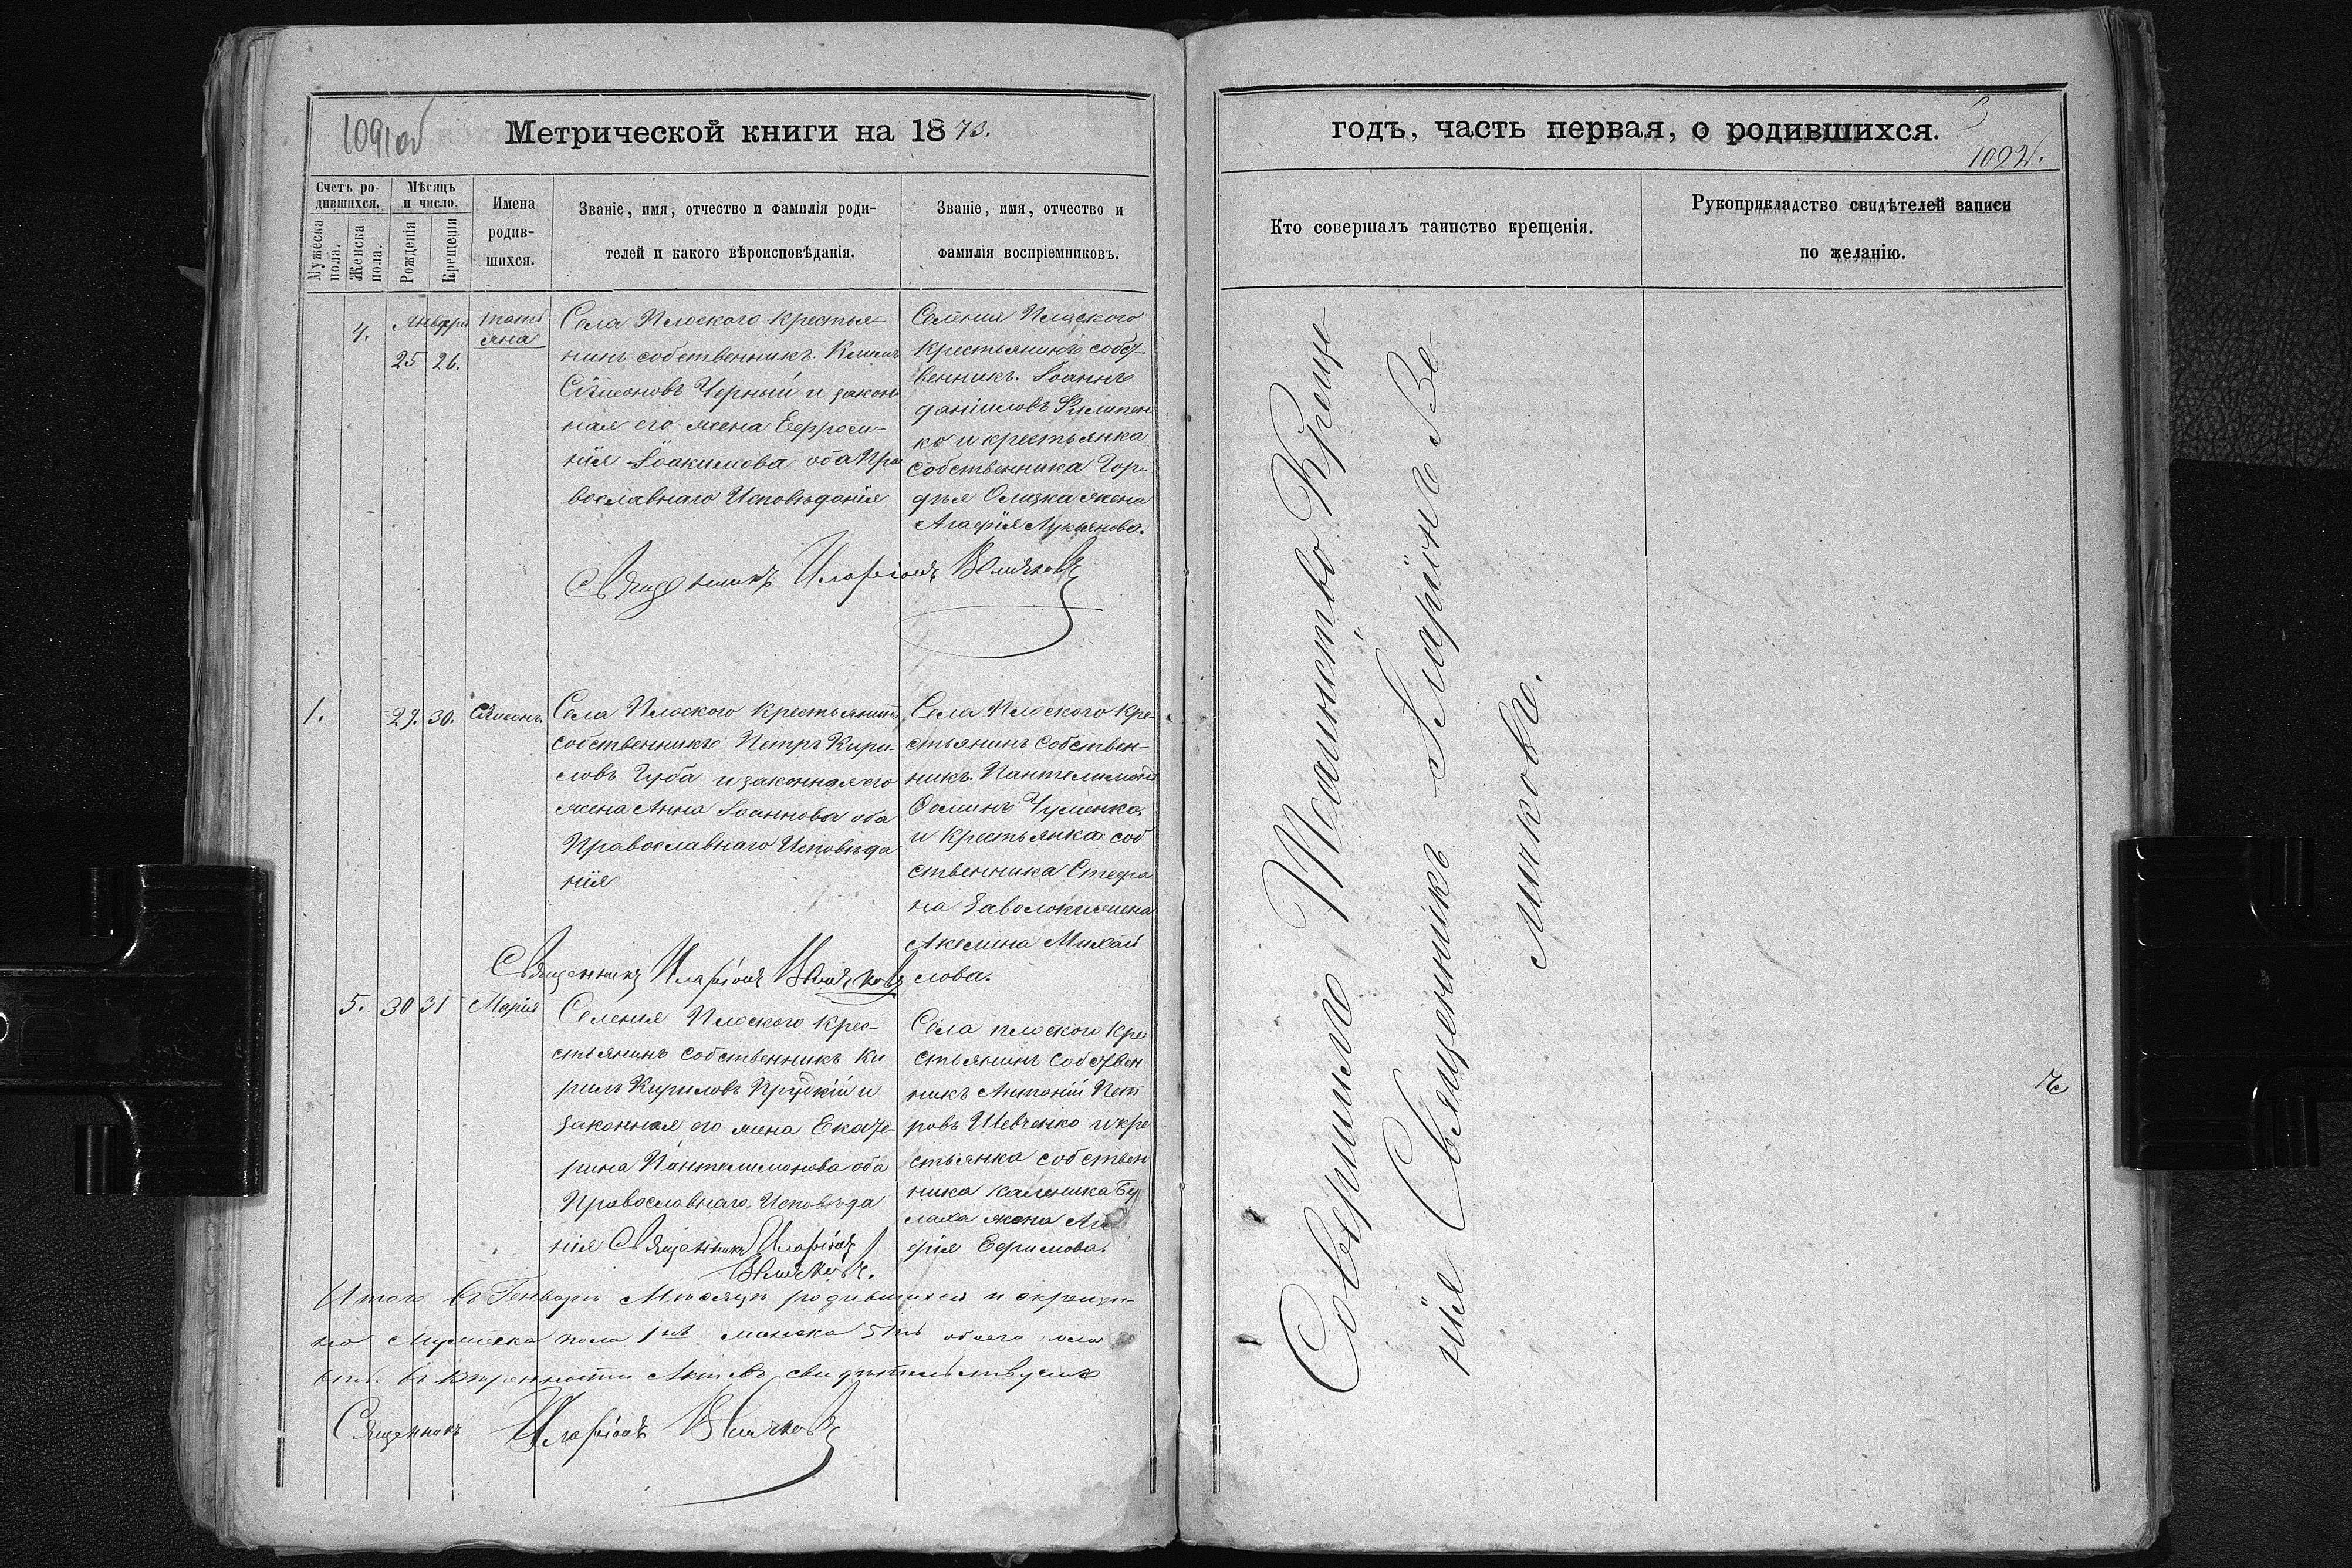 1091об
Метрической книги на 1873.
Счетъ ро-
дившихся.
Мѣсяцъ
и число.
Мужеска
пола.
Женска
пола.
Рожденія
Крещенія
Имена
родив-
шихся.
Званіе, имя, отчество и фамилія роди-
телей и какого вѣроисповѣданія.
Званіе, имя, отчество и
фамилія воспріемниковъ.
4.
Января
25 26.
Тать
яна
Села Плоского крестья-
нинъ собственникъ Климъ
Сѵмеоновъ Черный и закон
ная его жена Евфроси-
нія Іоакимова оба Пра
вославнаго Исповѣданія
Селенія Плоского
крестьянинъ собст
венникъ Іоаннъ
Даніиловъ Филипен
ко и крестьянка
собственника Гор-
дѣя Олизка жена
Агафія Лукьянова.
Священникъ Иларіонъ Величковъ
1.
29. 30.
Сѵмеонъ.
Села Плоского крестьянинъ
собственникъ Петръ Кири-
ловъ Губа и законная его
жена Анна Іоаннова оба
Православнаго Исповѣда
нія
Села Плоского кре-
стьянинъ собствен-
никъ Пантелимонъ
Ѳоминъ Чуменко
и крестьянка соб
ственника Стефа
на Заволоки жена
Акелина Михаи
лова.
Священникъ Иларіонъ Величковъ
5.
30 31
Марія
Селенія Плоского крес-
стьянинъ собственникъ Ки
рилъ Кириловъ Прудкій и
законная его жена Екате-
рина Пантелимонова оба
Православнаго Исповѣда
нія Священникъ Иларіонъ
Величковъ.
Села плоского кре
стьянинъ собствен
никъ Антоній Пет
ровъ Шевченко и кре
стьянка собствен
ника Каленика Бу
лаха жена Ага
фія Ефимова.
Итого въ Генварѣ Мѣсяцѣ родившихся и окрещен-
но Мужеска пола 1нъ женска 5ть обоего пола
6ть. въ вѣрности Актовъ свидѣтельствуемъ
Священникъ Иларіонъ Величковъ
годъ, часть первая, о родившихся.
1092.
Кто совершалъ таинство крещенія.
Рукоприкладство свидѣтелей записи
по желанію.
Совершилъ Таинство Креще
нія Священникъ Иларіонъ Ве
личковъ.